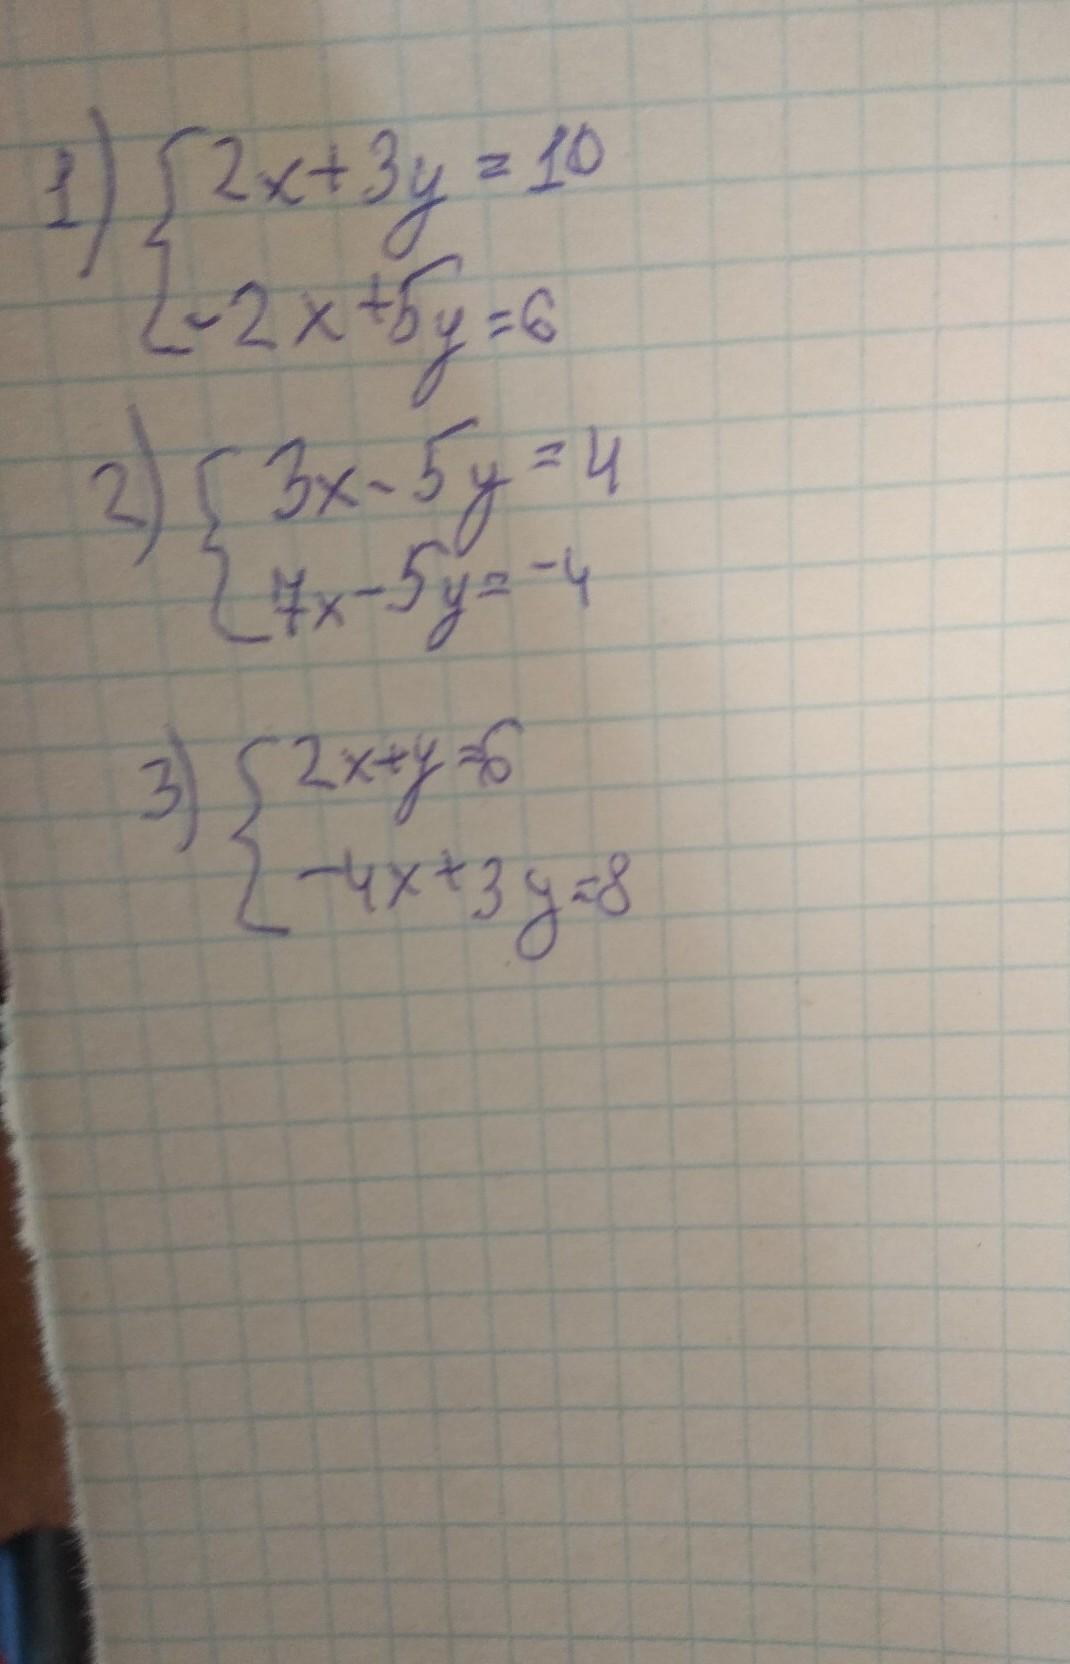 1) { 2x+3y=10
-2x+5y=6
2) { 3x-5y=4
7x-5y=-4
3) { 2x+y=6
-4x+3y=8